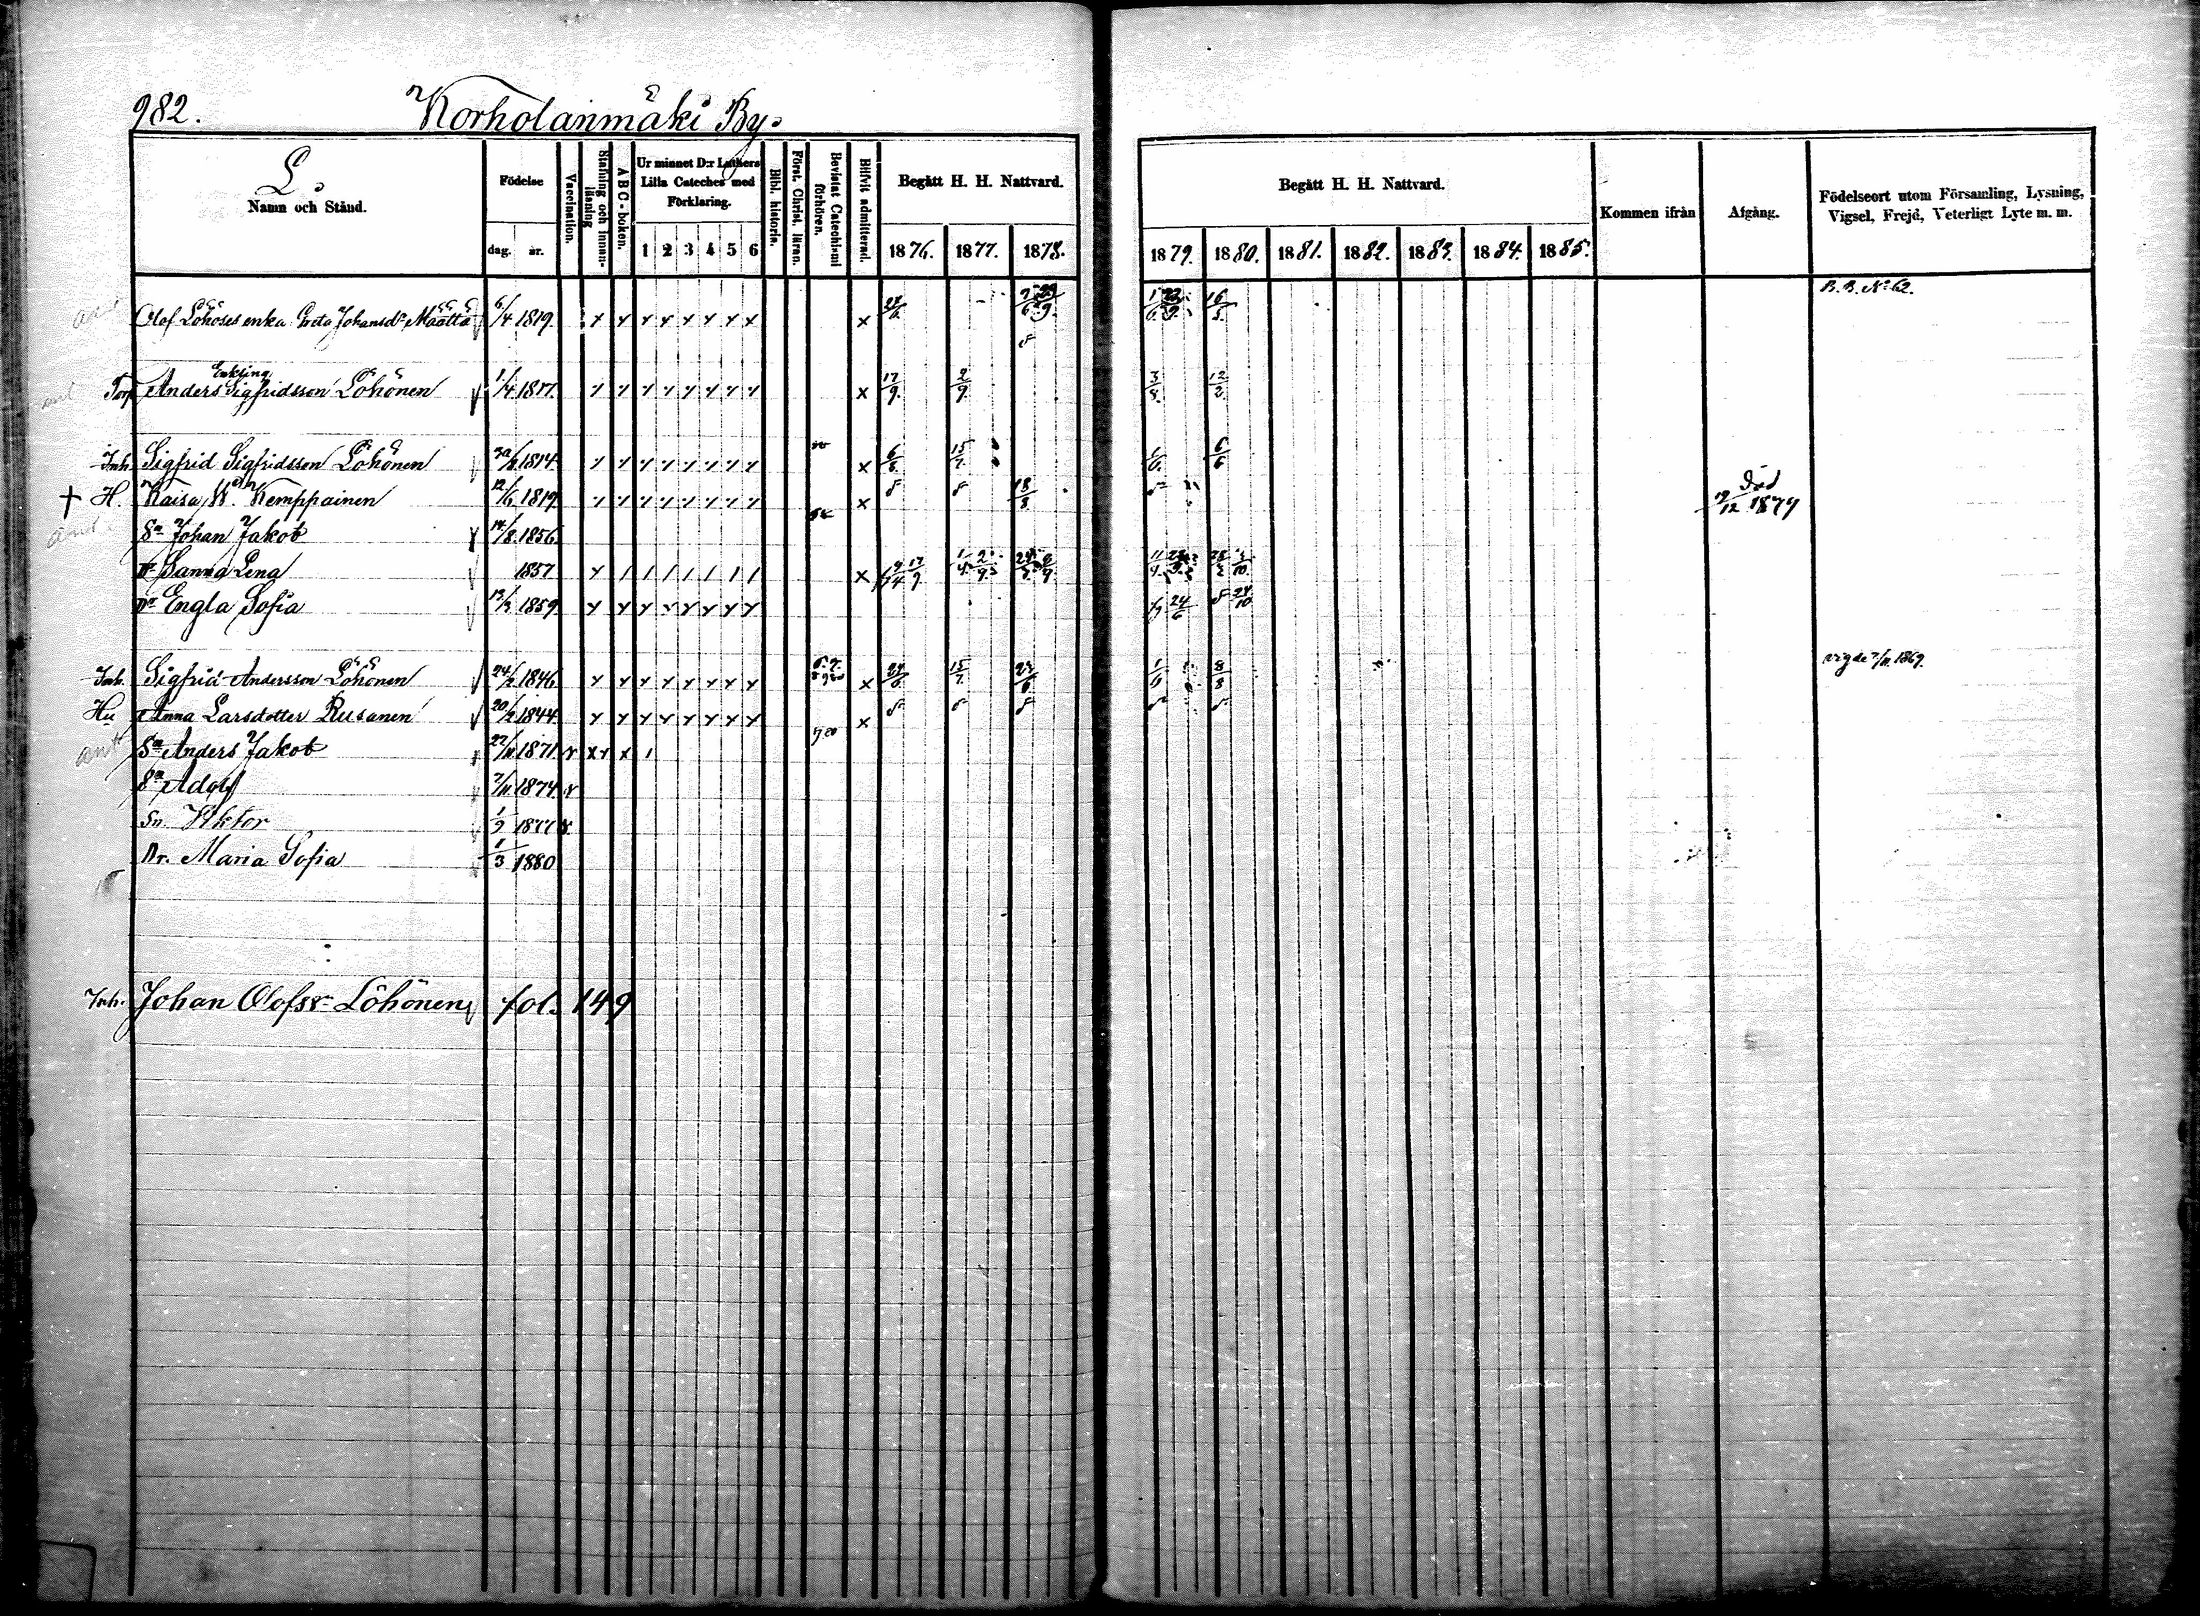 982. Korholanmäki By.
L.
Namn och Stånd.
Födelse
dag. år.
Vaccination.
Stafning och innanläsning
A B C - boken.
Ur minnet D:r Luthers Lilla Cateches med Förklaring.
1 2 3 4 5 6
Bibl. historia.
Först. Christ. läran.
Bevistat Catechismi förhören.
Blifvit admitterad.
Begått H. H. Nattvard.
1876. 1877. 1878.
Begått H. H. Nattvard.
1879. 1880. 1881. 1882. 1883. 1884. 1885.
Kommen ifrån
Afgång.
Födelseort utom Församling, Lysning, Vigsel, Frejd, Veterligt Lyte m. m.
B. B. No 62.
Olof Löhöses enka Greta Johansdr Määttä 6/4 1819
Enkling
Torp Anders Sigfridsson Löhönen 1/4 1817 17/9 2/9 3/8 12/2
Inh. Sigfrid Sigfridsson Löhönen 1814 6/8 15/7 6/6
† H. Kaisa Kemppainen 12/6 1819 18/8 död 19/12 1879
Sn Johan Jakob 14/8 1856
Dr Sanna Lena 1857
Dr Engla Sofia 1859 24/6 24/10
Inh. Sigfrid Andersson Löhönen 24/2 1846 15/7 8/8 vigde 7/11 1869.
Hu Anna Larsdotter Rusanen 20/2 1844
Sn Anders Jakob 27/11 1871
Sn Adolf 7/11 1874
Sn Viktor 1/9 1877
Dr. Maria Sofia 1/3 1880
Inh. Johan Olofss. Löhönen fol. 149